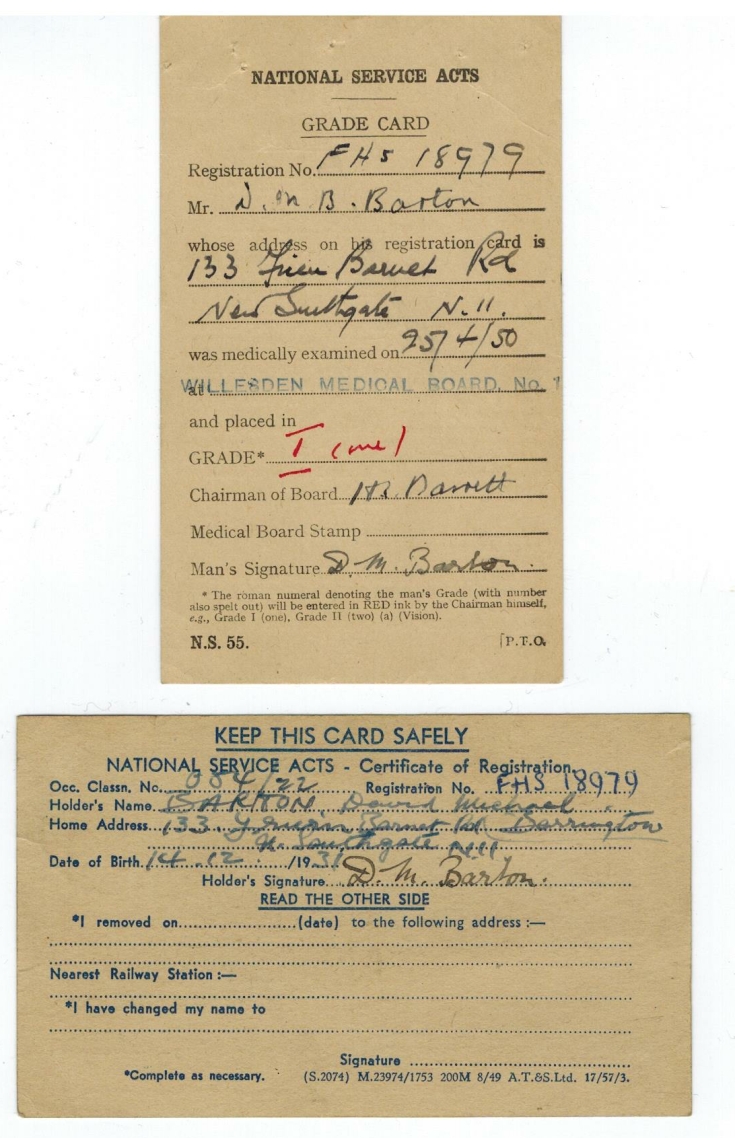 NATIONAL SERVICE ACTS
GRADE CARD
Registration No. FHS 18979
Mr. D. M. B. Barton
whose address on his registration card is
133 Friern Barnet Rd
New Southgate N.11.
was medically examined on 25/4/50
at WILLESDEN MEDICAL BOARD, No. 1
and placed in
GRADE* I (one)
Chairman of Board H. Barrett
Medical Board Stamp
Man's Signature D. M. Barton.
* The roman numeral denoting the man's Grade (with number
also spelt out) will be entered in RED ink by the Chairman himself,
e.g., Grade I (one), Grade II (two) (a) (Vision).
N.S. 55. [P.T.O.
KEEP THIS CARD SAFELY
NATIONAL SERVICE ACTS - Certificate of Registration
Occ. Classn. No. 084/22 Registration No. FHS 18979
Holder's Name BARTON, David Michael
Home Address 133, Friern Barnet Rd Barrington
N. Southgate N11
Date of Birth 14.12./1931
Holder's Signature D. M. Barton.
READ THE OTHER SIDE
*I removed on (date) to the following address :—
Nearest Railway Station :—
*I have changed my name to
Signature
*Complete as necessary. (S.2074) M.23974/1753 200M 8/49 A.T.&S.Ltd. 17/57/3.